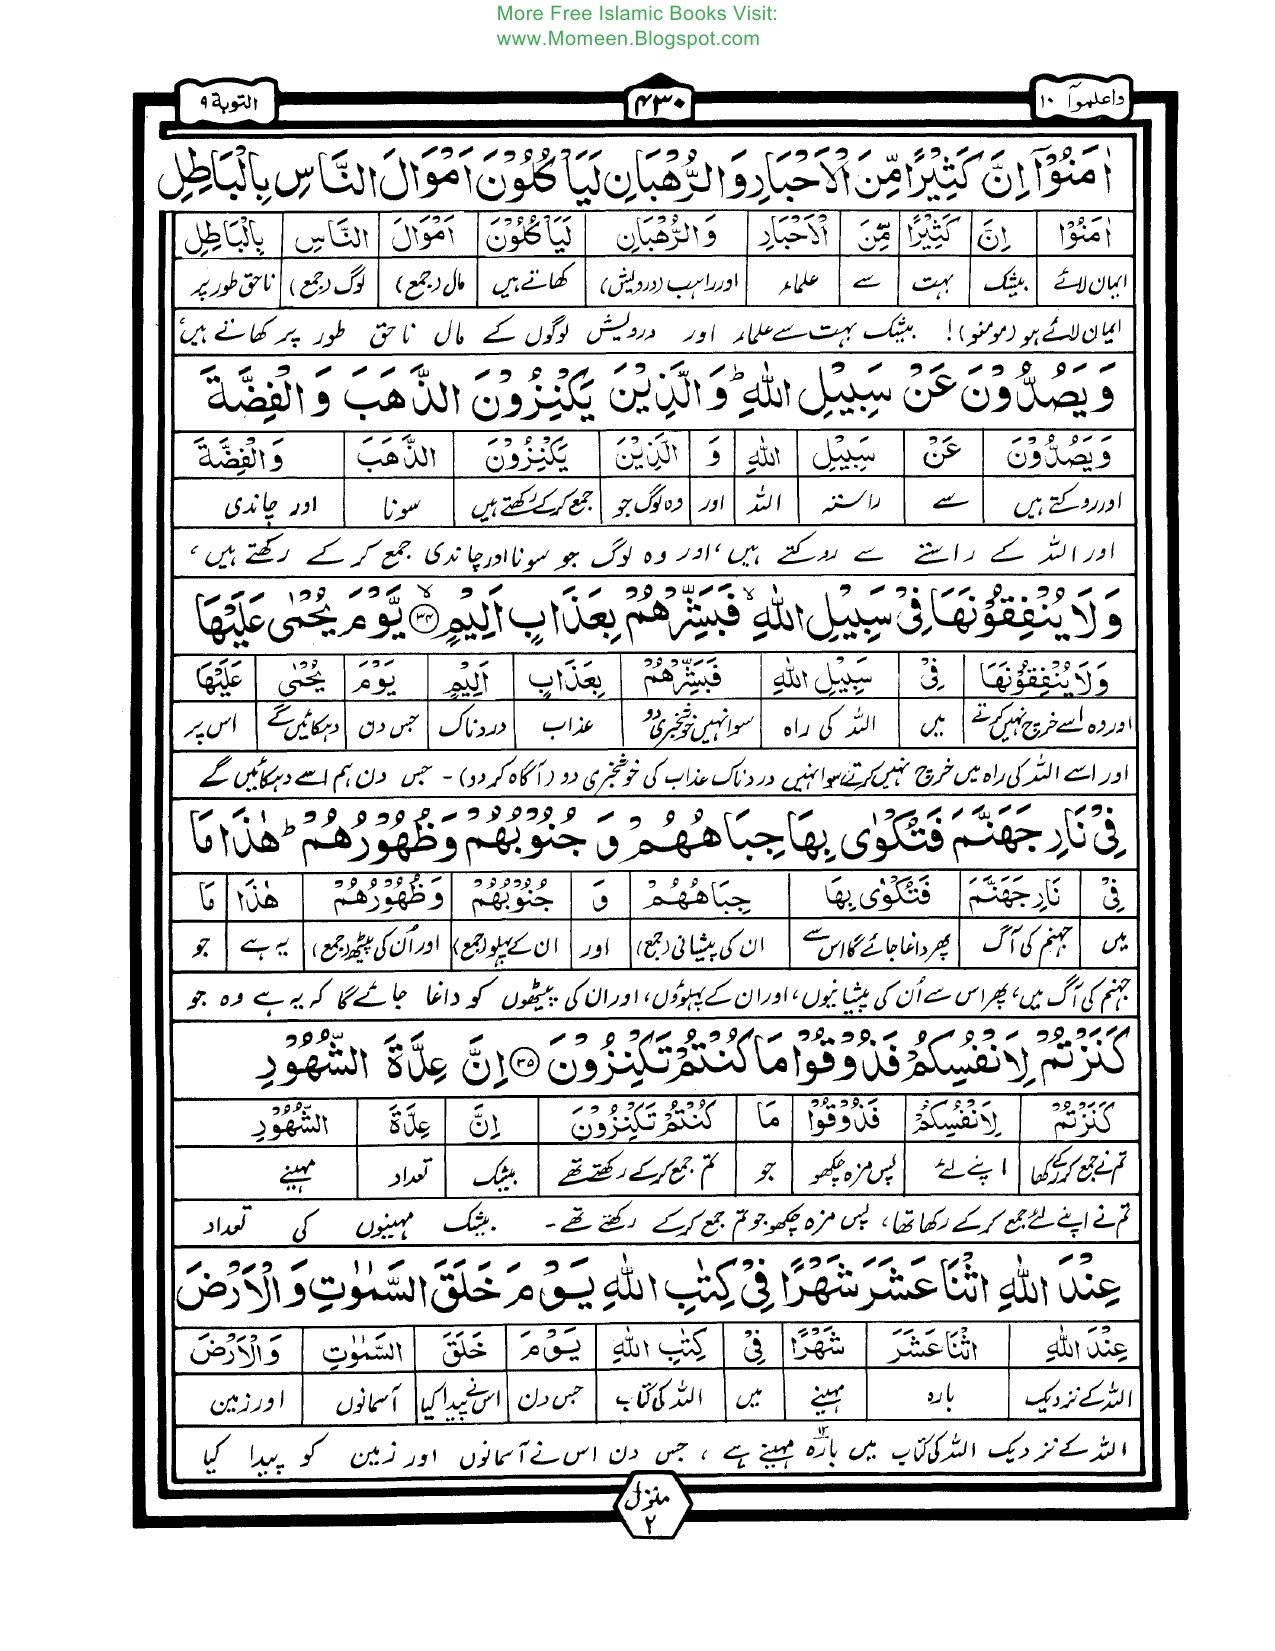 More Free Islamic Books Visit:
www.Momeen.Blogspot.com
واعلموآ ۱۰ ۴۳۰ التوبة ۹
اٰمَنُوْٓا اِنَّ كَثِيْرًا مِّنَ الْاَحْبَارِ وَالرُّهْبَانِ لَيَاْكُلُوْنَ اَمْوَالَ النَّاسِ بِالْبَاطِلِ
اٰمَنُوْٓا اِنَّ كَثِيْرًا مِّنَ الْاَحْبَارِ وَالرُّهْبَانِ لَيَاْكُلُوْنَ اَمْوَالَ النَّاسِ بِالْبَاطِلِ
ایمان لائے بیشک بہت سے علماء اور راہب (درویش) کھاتے ہیں مال (جمع) لوگ (جمع) ناحق طور پر
ایمان لائے ہو (مومنو)! بیشک بہت سے علماء اور درویش لوگوں کے مال ناحق طور پر کھاتے ہیں،
وَيَصُدُّوْنَ عَنْ سَبِيْلِ اللّٰهِ ؕ وَالَّذِيْنَ يَكْنِزُوْنَ الذَّهَبَ وَالْفِضَّةَ
وَيَصُدُّوْنَ عَنْ سَبِيْلِ اللّٰهِ وَ الَّذِيْنَ يَكْنِزُوْنَ الذَّهَبَ وَالْفِضَّةَ
اور روکتے ہیں سے راستہ اللہ اور وہ لوگ جو جمع کر کے رکھتے ہیں سونا اور چاندی
اور اللہ کے راستے سے روکتے ہیں، اور وہ لوگ جو سونا اور چاندی جمع کر کے رکھتے ہیں،
وَلَا يُنْفِقُوْنَهَا فِيْ سَبِيْلِ اللّٰهِ ۙ فَبَشِّرْهُمْ بِعَذَابٍ اَلِيْمٍ ۙ ۳۴ يَّوْمَ يُحْمٰى عَلَيْهَا
وَلَا يُنْفِقُوْنَهَا فِيْ سَبِيْلِ اللّٰهِ فَبَشِّرْهُمْ بِعَذَابٍ اَلِيْمٍ يَوْمَ يُحْمٰى عَلَيْهَا
اور وہ اسے خرچ نہیں کرتے میں اللہ کی راہ سو انہیں خوشخبری دو عذاب دردناک جس دن دہکائیں گے اس پر
اور اسے اللہ کی راہ میں خرچ نہیں کرتے سو انہیں دردناک عذاب کی خوشخبری دو (آگاہ کر دو) - جس دن ہم اسے دہکائیں گے
فِيْ نَارِ جَهَنَّمَ فَتُكْوٰى بِهَا جِبَاهُهُمْ وَ جُنُوْبُهُمْ وَظُهُوْرُهُمْ ؕ هٰذَا مَا
فِيْ نَارِ جَهَنَّمَ فَتُكْوٰى بِهَا جِبَاهُهُمْ وَ جُنُوْبُهُمْ وَظُهُوْرُهُمْ هٰذَا مَا
میں جہنم کی آگ پھر داغا جائے گا اس سے ان کی پیشانی (جمع) اور ان کے پہلو (جمع) اور اُن کی پیٹھ (جمع) یہ ہے جو
جہنم کی آگ میں، پھر اس سے اُن کی پیشانیوں، اور ان کے پہلوؤں، اور ان کی پیٹھوں کو داغا جائے گا کہ یہ ہے وہ جو
كَنَزْتُمْ لِاَنْفُسِكُمْ فَذُوْقُوْا مَا كُنْتُمْ تَكْنِزُوْنَ ۳۵ اِنَّ عِدَّةَ الشُّهُوْرِ
كَنَزْتُمْ لِاَنْفُسِكُمْ فَذُوْقُوْا مَا كُنْتُمْ تَكْنِزُوْنَ اِنَّ عِدَّةَ الشُّهُوْرِ
تم نے جمع کر کے رکھا اپنے لئے پس مزہ چکھو جو تم جمع کر کے رکھتے تھے بیشک تعداد مہینے
تم نے اپنے لئے جمع کر کے رکھا تھا، پس مزہ چکھو جو تم جمع کر کے رکھتے تھے - بیشک مہینوں کی تعداد
عِنْدَ اللّٰهِ اثْنَا عَشَرَ شَهْرًا فِيْ كِتٰبِ اللّٰهِ يَوْمَ خَلَقَ السَّمٰوٰتِ وَالْاَرْضَ
عِنْدَ اللّٰهِ اثْنَا عَشَرَ شَهْرًا فِيْ كِتٰبِ اللّٰهِ يَوْمَ خَلَقَ السَّمٰوٰتِ وَالْاَرْضَ
اللہ کے نزدیک بارہ مہینے میں اللہ کی کتاب جس دن اس نے پیدا کیا آسمانوں اور زمین
اللہ کے نزدیک اللہ کی کتاب میں بارہ ۱۲ مہینے ہے، جس دن اس نے آسمانوں اور زمین کو پیدا کیا
منزل
۲